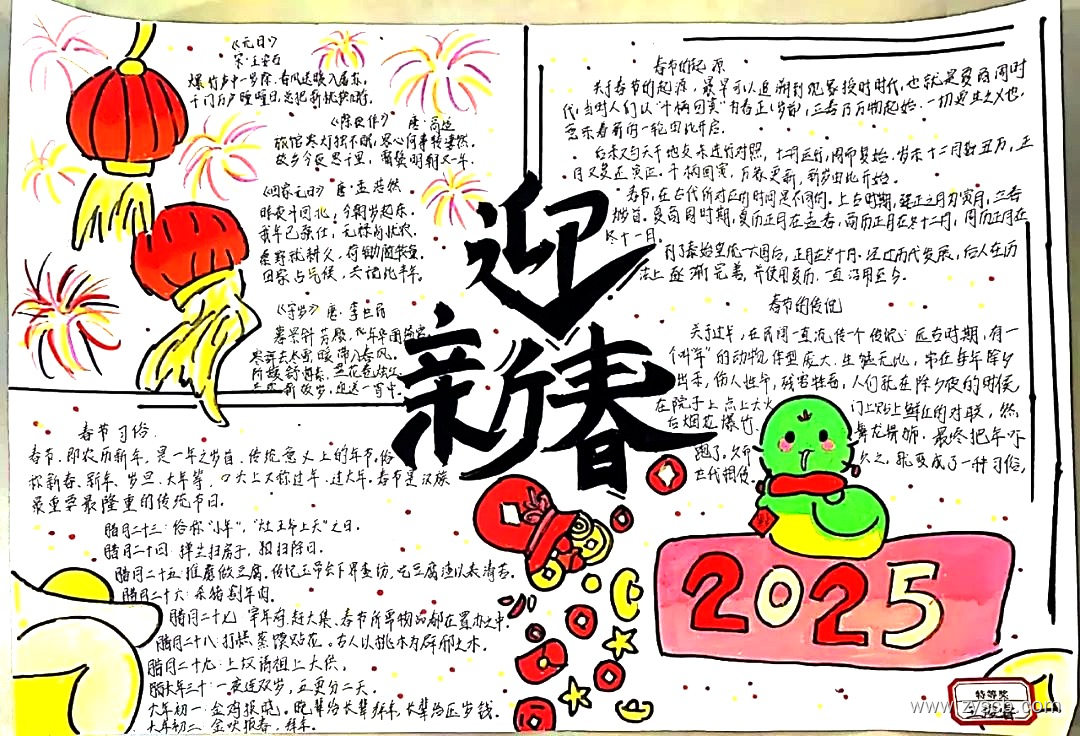 《元日》
宋·王安石
爆竹声中一岁除，春风送暖入屠苏，
千门万户曈曈日，总把新桃换旧符。
《除夜作》 唐·高适
旅馆寒灯独不眠，客心何事转凄然。
故乡今夜思千里，霜鬓明朝又一年。
《田家元日》唐·孟浩然
昨夜斗回北，今朝岁起东，
我年已强仕，无禄尚忧农。
桑野就耕父，荷锄随牧童。
田家占气候，共说此年丰。
《守岁》唐·李世民
寒辞去冬雪，暖带入春风。
迎
新春
春节习俗
春节，即农历新年，是一年之岁首、传统意义上的年节。俗
称新春、新年、岁旦、大年等，口头上又称过年、过大年。春节是汉族
最重要最隆重的传统节日。
腊月二十三：俗称"小年"，"灶王爷上天"之日。
腊月二十四：掸尘扫房子，
腊月二十五：推磨做豆腐，传说玉帝会下界查访，吃豆腐渣以表清苦。
腊月二十六：杀猪割年肉。
腊月二十七：宰年鸡、赶大集、春节所需物品都在置办之中。
腊月二十八：打糕蒸馍贴花。古人以桃木为辟邪之木。
腊月二十九：上坟请祖上大供。
腊月年三十：一夜连双岁，五更分二天。
大年初一：金鸡报晓。晚辈给长辈拜年，长辈给压岁钱。
大年初二：金吠报春，拜年。
春节的起源
关于春节的起源，最早可以追溯到 授时时代，也就是夏商周时
代，当时人们以"斗柄回寅"为春正(岁首)，三春乃万物起始、一切更生之义也，
意味着新的一轮由此开启。
后来又与天干地支来进行对照，十二月运行，周而复始。岁末十二月数丑方，正
月又复还寅正。斗柄回寅，万象更新，新岁由此开始。
春节，在古代所对应的时间是不同的。上古时期，建正之月为寅月，三春
始首。夏商周时期，夏历正月在孟春，商历正月在冬十二月，周历正月在
冬十一月。
到了秦始皇统一六国后，正月在冬十月。经过历代发展，后人在历
法上逐渐完善，并使用夏历一直沿用至今。
春节的传说
关于过年，在民间一直流传个传说：远古时期，有一
个叫"年"的动物，体型庞大、生猛无比，常在每年除夕
出来，伤人性命，残害牲畜，人们就在除夕夜的时候
在院子上点上大火 门上贴上鲜红的对联，然
后烟花爆竹 舞龙舞狮，最终把年吓
跑了。久而 久之，就变成了一种习俗，
世代相传。
2025
特等奖